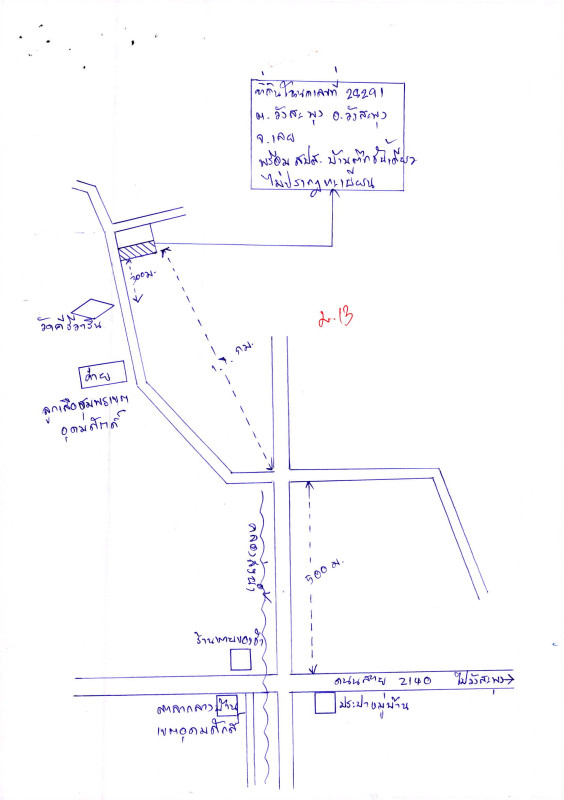 ที่ดินโฉนดเลขที่ 24291
ต. วังสะพุง อ. วังสะพุง
จ. เลย
พร้อม สปส. บ้านตึกชั้นเดียว
ไม่ปรากฏทะเบียน
300 ม.
วัดคีรีวารัน
ม.13
กม.
ค่าย
ลูกเสือชุมพรเขต
อุดมศักดิ์
500 ม.
ร้านขายของชำ
ถนนสาย 2140 ไปวังสะพุง
ศาลากลางบ้าน
ประปาหมู่บ้าน
เขตอุดมศักดิ์